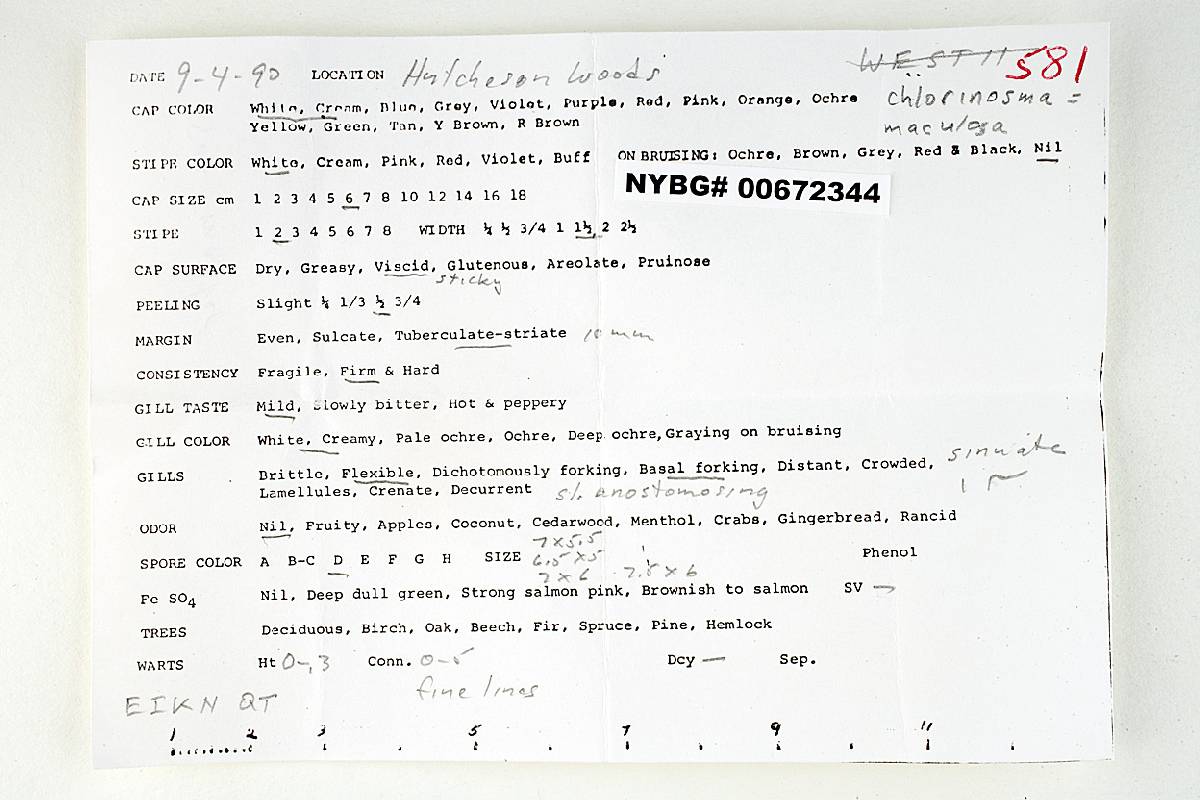 DATE 9-4-90 LOCATION Hutcheson Woods WEST 11 581
CAP COLOR White, Cream, Blue, Grey, Violet, Purple, Red, Pink, Orange, Ochre chlorinosma =
Yellow, Green, Tan, Y Brown, R Brown maculosa
STIPE COLOR White, Cream, Pink, Red, Violet, Buff ON BRUISING: Ochre, Brown, Grey, Red & Black, Nil
NYBG# 00672344
CAP SIZE cm 1 2 3 4 5 6 7 8 10 12 14 16 18
STIPE 1 2 3 4 5 6 7 8 WIDTH ¼ ½ 3/4 1 1½ 2 2½
CAP SURFACE Dry, Greasy, Viscid, Glutenous, Areolate, Pruinose
sticky
PEELING Slight ¼ 1/3 ½ 3/4
MARGIN Even, Sulcate, Tuberculate-striate 10 mm
CONSISTENCY Fragile, Firm & Hard
GILL TASTE Mild, Slowly bitter, Hot & peppery
GILL COLOR White, Creamy, Pale ochre, Ochre, Deep ochre, Graying on bruising
GILLS Brittle, Flexible, Dichotomously forking, Basal forking, Distant, Crowded, sinuate
Lamellules, Crenate, Decurrent sl. anostomosing
ODOR Nil, Fruity, Apples, Coconut, Cedarwood, Menthol, Crabs, Gingerbread, Rancid
7 x 5.5
SPORE COLOR A B-C D E F G H SIZE 6.5 x 5 Phenol
7 x 6 7.5 x 6
Fe SO4 Nil, Deep dull green, Strong salmon pink, Brownish to salmon SV —
TREES Deciduous, Birch, Oak, Beech, Fir, Spruce, Pine, Hemlock
WARTS Ht 0-.3 Conn. 0-5 Dcy — Sep.
fine lines
EIKN QT
1 2 3 5 7 9 11